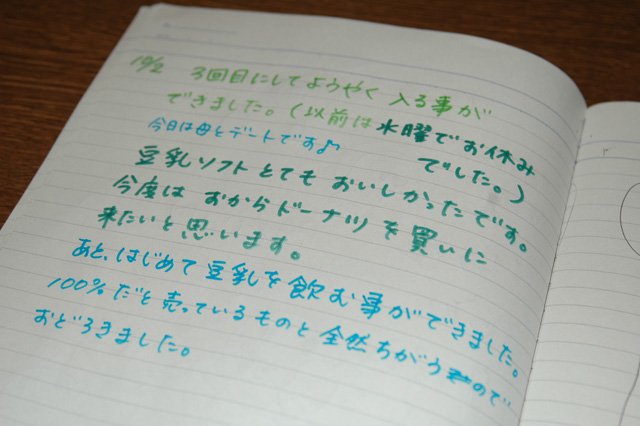 10/2 3回目にしてようやく入る事が
できました。(以前は水曜でお休み
でした。)
今日は母とデートです♪
豆乳ソフトとてもおいしかったです。
今度はおからドーナツを買いに
来たいと思います。
あと、はじめて豆乳を飲む事ができました。
100%だと売っているものと全然ちがうので
おどろきました。